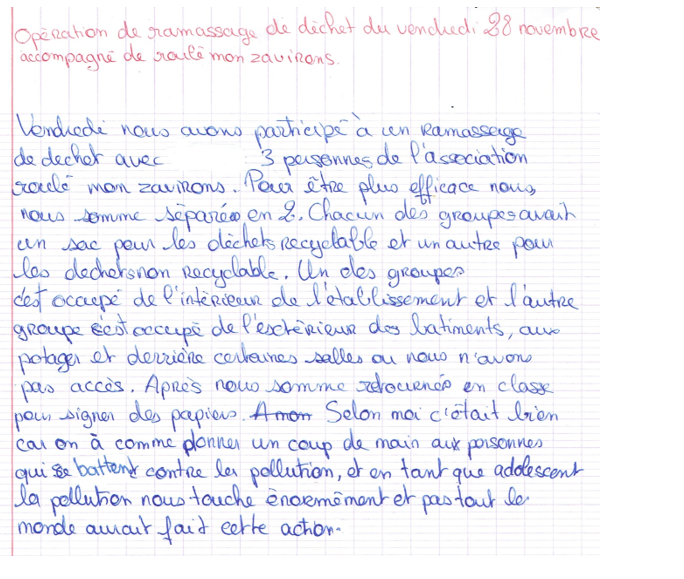 Opération de ramassage de déchet du vendredi 28 novembre
accompagné de roulé mon zavirons.
Vendredi nous avons participé à un Ramassage
de dechet avec 3 personnes de l'association
roulé mon zavirons. Pour être plus efficace nous,
nous somme séparés en 2. Chacun des groupes avait
un sac pour les déchets recyclable et un autre pour
les dechets non Recyclable. Un des groupes
c'est occupé de l'intérieur de l'établissement et l'autre
groupe c'est occupé de l'exctérieur des batiments, aux
potager et derrière certaines salles ou nous n'avons
pas accès. Après nous somme retournés en classe
pour signer des papiers. A mon Selon moi c'était bien
car on à comme donner un coup de main aux personnes
qui se battent contre les pollution, et en tant que adolescent
la pollution nous touche énormément et pas tout le
monde aurait fait cette action.